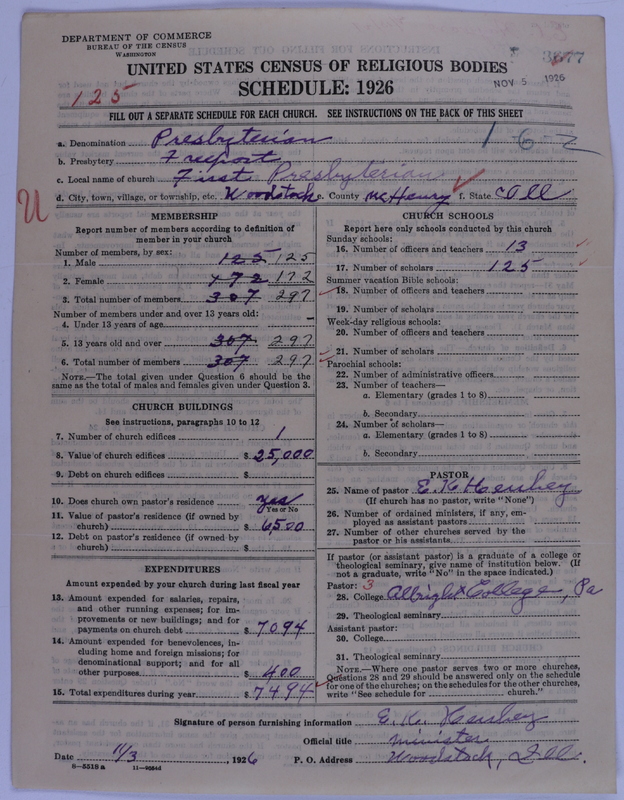 DEPARTMENT OF COMMERCE
BUREAU OF THE CENSUS
WASHINGTON
3677
UNITED STATES CENSUS OF RELIGIOUS BODIES
NOV 5 1926
SCHEDULE: 1926
125
FILL OUT A SEPARATE SCHEDULE FOR EACH CHURCH. SEE INSTRUCTIONS ON THE BACK OF THIS SHEET
1-6-2
a. Denomination Presbyterian
b. Presbytery Freeport
c. Local name of church First Presbyterian
d. City, town, village, or township, etc. Woodstock e. County McHenry f. State Ill
U
MEMBERSHIP
Report number of members according to definition of
member in your church
Number of members, by sex:
1. Male 125 125
2. Female 172 172
3. Total number of members 307 297
Number of members under and over 13 years old:
4. Under 13 years of age –
5. 13 years old and over 307 297
6. Total number of members 307 297
NOTE.—The total given under Question 6 should be the
same as the total of males and females given under Question 3.
CHURCH BUILDINGS
See instructions, paragraphs 10 to 12
7. Number of church edifices 1
8. Value of church edifices $ 25,000
9. Debt on church edifices $
10. Does church own pastor's residence yes
Yes or No
11. Value of pastor's residence (if owned by
church) $ 6,500
12. Debt on pastor's residence (if owned by
church) $
EXPENDITURES
Amount expended by your church during last fiscal year
13. Amount expended for salaries, repairs,
and other running expenses; for im-
provements or new buildings; and for
payments on church debt $ 7094
14. Amount expended for benevolences, in-
cluding home and foreign missions; for
denominational support; and for all
other purposes $ 400
15. Total expenditures during year $ 7494
CHURCH SCHOOLS
Report here only schools conducted by this church
Sunday schools:
16. Number of officers and teachers 13
17. Number of scholars 125
Summer vacation Bible schools:
18. Number of officers and teachers
19. Number of scholars
Week-day religious schools:
20. Number of officers and teachers
21. Number of scholars
Parochial schools:
22. Number of administrative officers
23. Number of teachers—
a. Elementary (grades 1 to 8)
b. Secondary
24. Number of scholars—
a. Elementary (grades 1 to 8)
b. Secondary
PASTOR
25. Name of pastor E. K. Hershey
(If church has no pastor, write "None")
26. Number of ordained ministers, if any, em-
ployed as assistant pastors
27. Number of other churches served by the
pastor or his assistants
If pastor (or assistant pastor) is a graduate of a college or
theological seminary, give name of institution below. (If
not a graduate, write "No" in the space indicated.)
Pastor: 3
28. College Albright College, Pa
29. Theological seminary
Assistant pastor:
30. College
31. Theological seminary
NOTE.—Where one pastor serves two or more churches,
Questions 28 and 29 should be answered only on the schedule
for one of the churches; on the schedules for the other churches,
write "See schedule for church."
Signature of person furnishing information E. K. Hershey
Official title Minister
Date 11/3, 1926 P. O. Address Woodstock, Ill.
8-5518 a 11-9664d